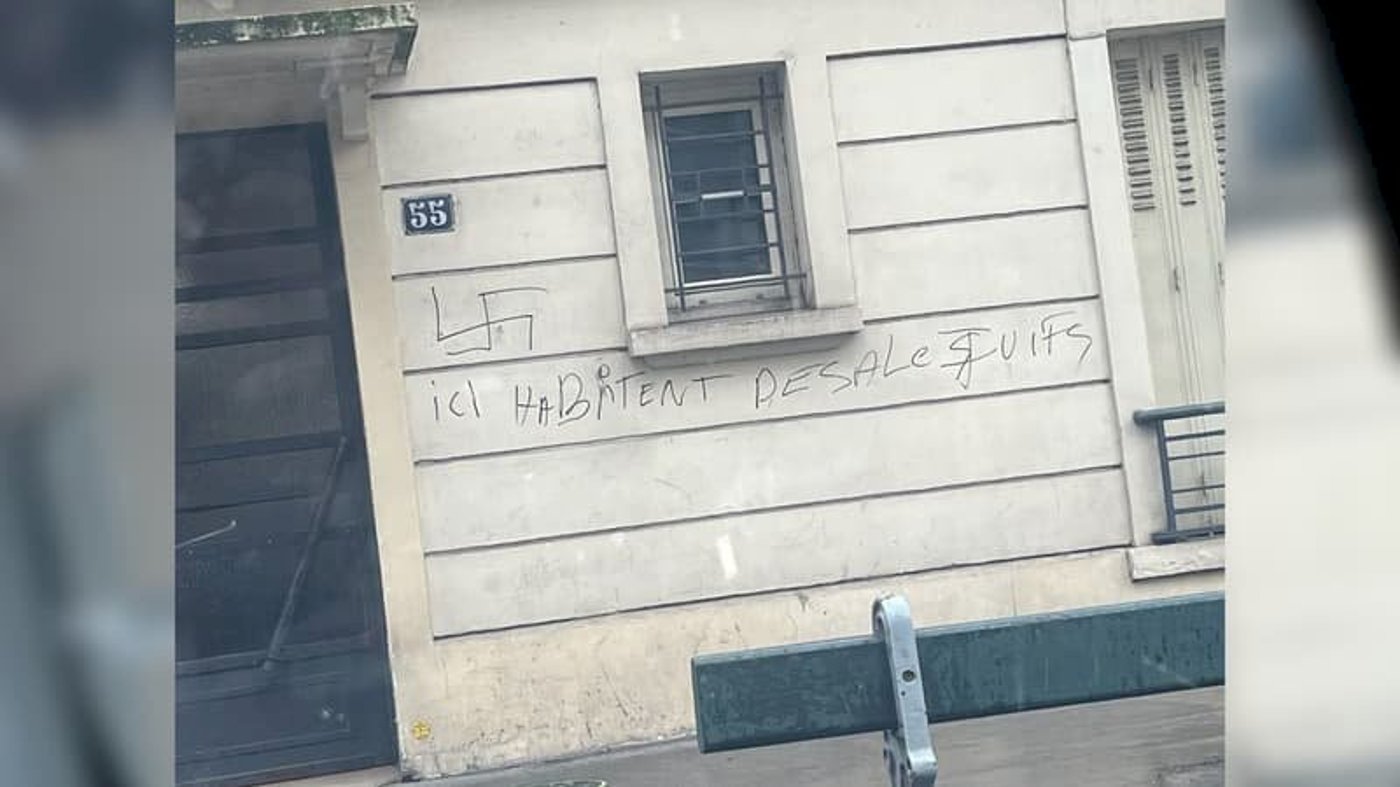 55
ici HABiTENT DE SALeS JUIFS